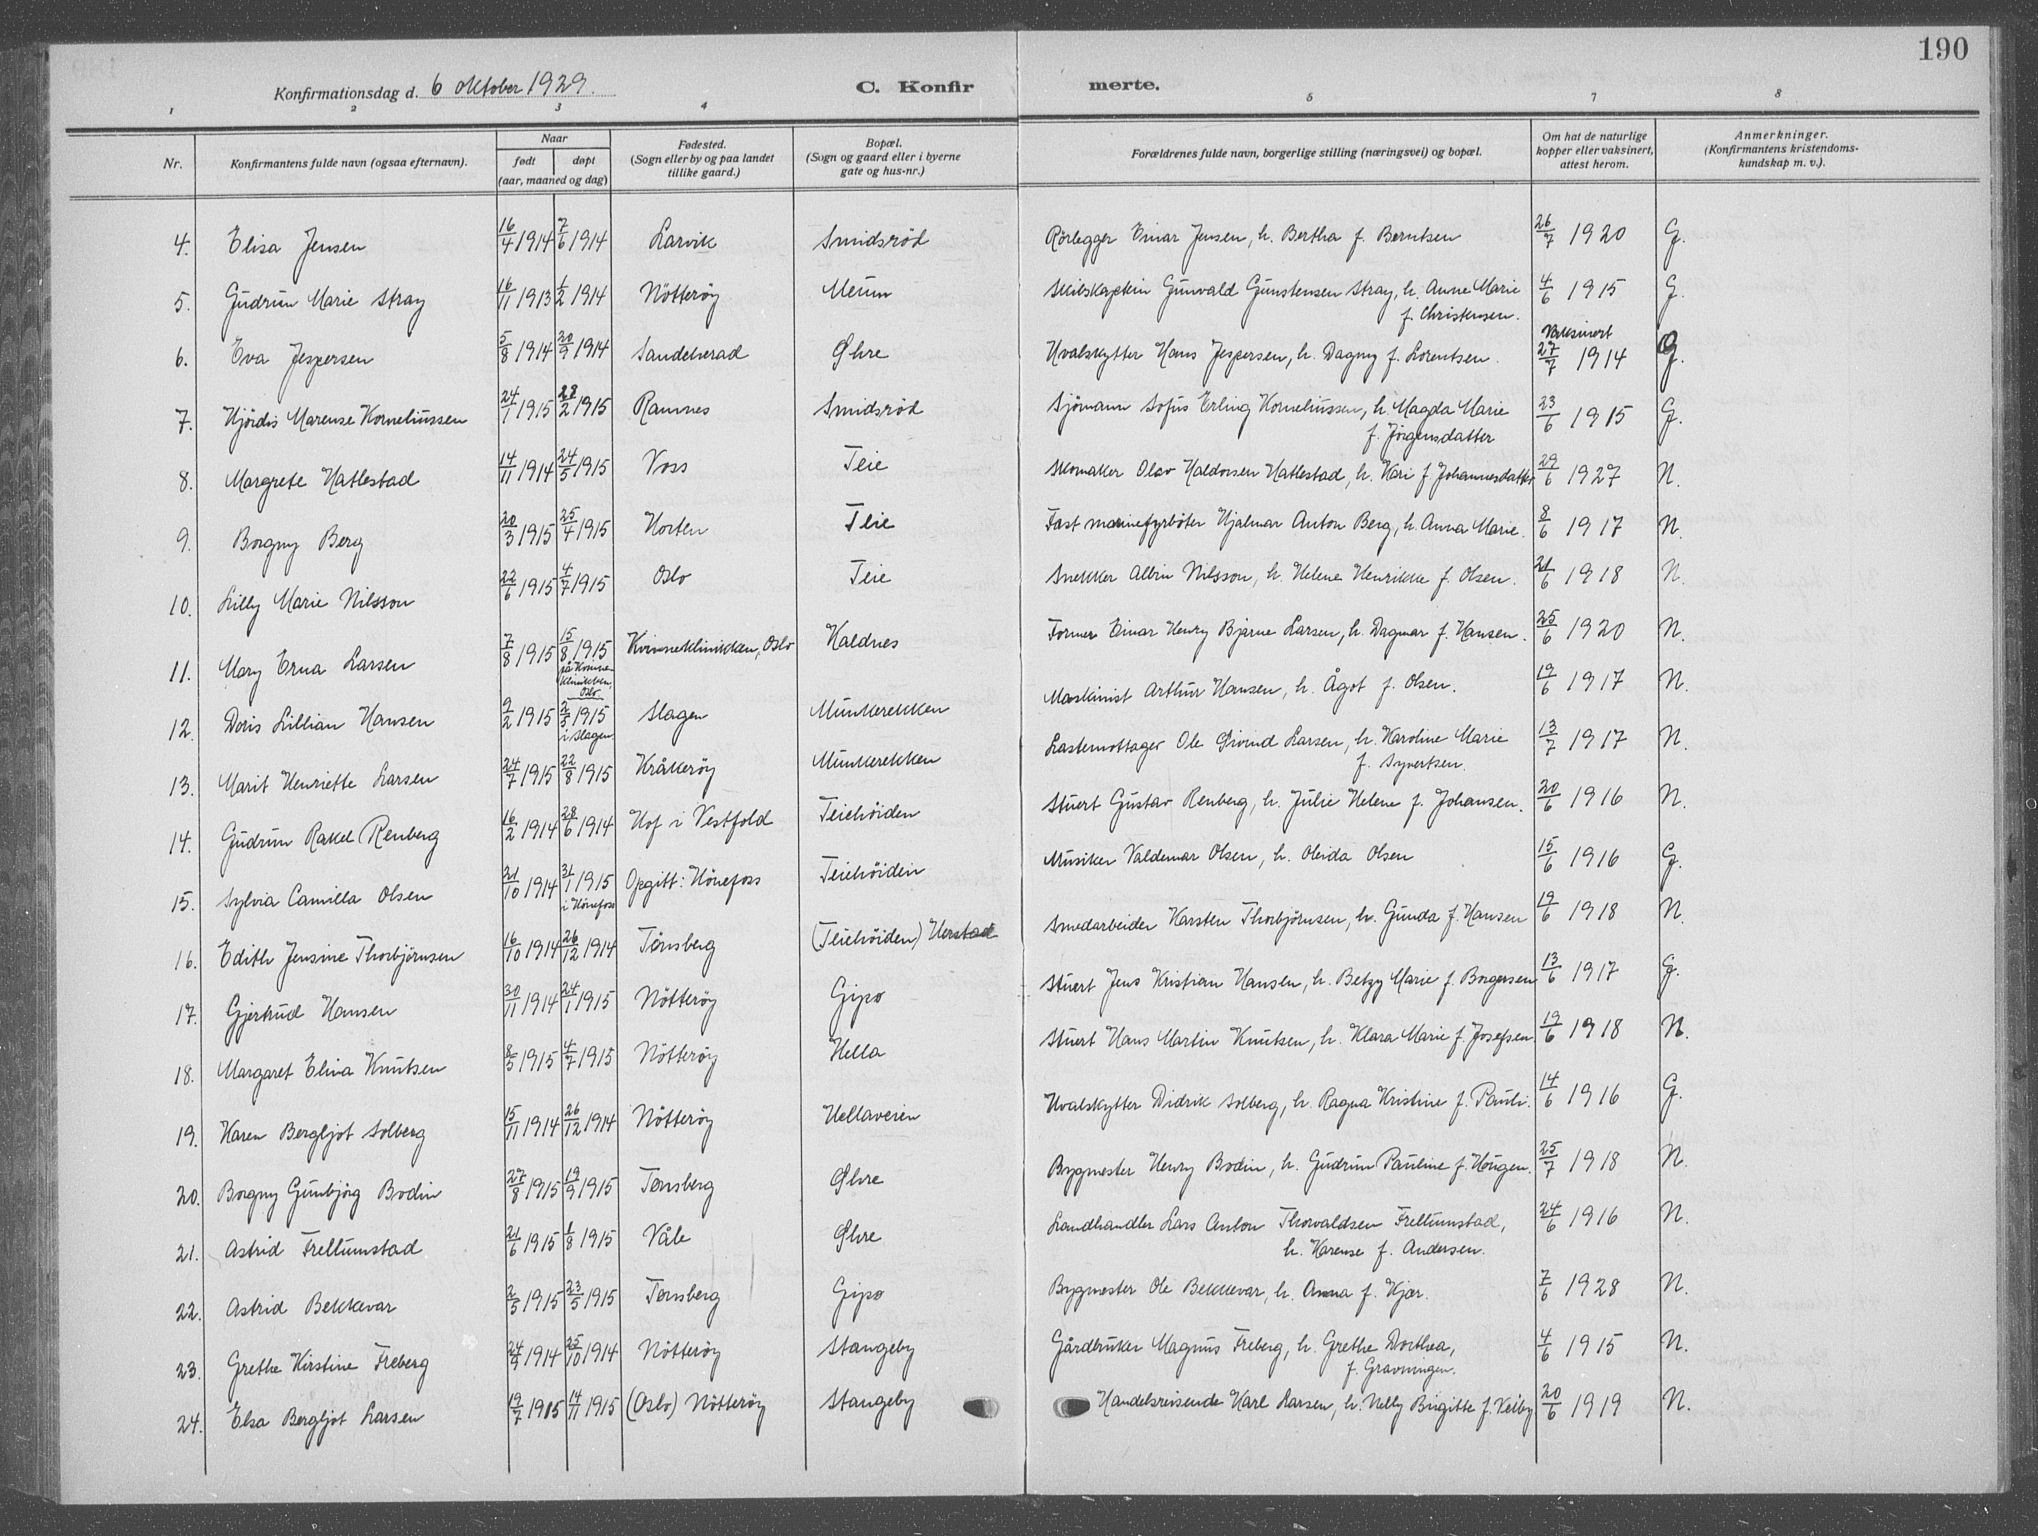 190
Konfirmationsdag d. 6 oktober 1929.
C. Konfirmerte.
1 2 3 4 6 7 8
Nr. | Konfirmantens fulde navn (ogsaa efternavn). | Naar født døpt (aar, maaned og dag) | Fødested. (Sogn eller by og paa landet tillike gaard.) | Bopæl. (Sogn og gaard eller i byerne gate og hus-nr.) | Forældrenes fulde navn, borgerlige stilling (næringsvei) og bopæl. | Om hat de naturlige kopper eller vaksinert, attest herom. | Anmerkninger. (Konfirmantens kristendomskundskap m. v.).
4. Elisa Jensen 16/4 1914 7/6 1914 Larvik Smidsrød Rörlegger Einar Jensen, h. Bertha f. Berntsen 26/7 1920 G.
5. Gudrun Marie Stray 16/11 1913 1/2 1914 Nötteröy Meum Skibskaptein Gunvald Gunstensen Stray, h. Anne Marie f. Christensen. 4/6 1915 G.
6. Eva Jespersen 5/8 1914 20/9 1914 Sandeherad Øhre Hvalskytter Hans Jespersen, h. Dagny f. Lorentsen. Vaksinert 27/7 1914 G.
7. Hjördis Marense Korneliussen 24/1 1915 28/2 1915 Ramnes Smidsrød Sjömann Sofus Erling Korneliussen, h. Magda Marie f. Jörgensdatter 23/6 1915 G.
8. Margrete Hatlestad 14/11 1914 24/5 1915 Voss Teie Skomaker Olav Haldorsen Hatlestad, h. Kari f. Johannesdatter 29/6 1927 N.
9. Borgny Berg 20/3 1915 25/4 1915 Horten Teie Fast marinefyrböter Hjalmar Anton Berg, h. Anna Marie. 8/6 1917 N.
10. Lilly Marie Nilsson 22/6 1915 4/7 1915 Oslo Teie Snekker Albin Nilsson, h. Helene Henrikke f. Olsen. 21/6 1918 N.
11. Mary Erna Larsen 7/8 1915 15/8 1915 på Kvinneklinikken, Oslo Kvinneklinikken, Oslo Kaldnes Former Einar Henry Bjarne Larsen, h. Dagmar f. Hansen. 25/6 1920 N.
12. Doris Lillian Hansen 9/2 1915 2/5 1915 i Slagen Slagen Munkerekken Maskinist Arthur Hansen, h. Ågot f. Olsen. 19/6 1917 N.
13. Marit Henriette Larsen 24/7 1915 22/8 1915 Kråkeröy Munkerekken Lastemottager Ole Eivind Larsen, h. Karoline Marie f. Syvertsen. 13/7 1917 N.
14. Gudrun Rakel Renberg 16/2 1914 28/6 1914 Hof i Vestfold Teiehöiden Stuert Gustav Renberg, h. Julie Helene f. Johansen. 20/6 1916 N.
15. Sylvia Camilla Olsen 21/10 1914 31/1 1915 i Hönefoss Opgitt: Hönefoss Teiehöiden Musiker Valdemar Olsen, h. Oleida Olsen 15/6 1916 G.
16. Edith Jensine Thorbjörnsen 16/10 1914 26/12 1914 Tønsberg (Teiehöiden) Herstad Smedarbeider Karsten Thorbjörnsen, h. Gunda f. Hansen 19/6 1918 N.
17. Gjertrud Hansen 30/11 1914 24/1 1915 Nötteröy Gipø Stuert Jens Kristian Hansen, h. Betzy Marie f. Borgersen 13/6 1917 G.
18. Margaret Elina Knutsen 8/5 1915 4/7 1915 Nötteröy Hella Stuert Hans Martin Knutsen, h. Klara Marie f. Josefsen. 19/6 1918 N.
19. Karen Bergljot Solberg 15/11 1914 26/12 1914 Nötteröy Hellaveien Hvalskytter Didrik Solberg, h. Ragna Kristine f. Pauli. 14/6 1916 G.
20. Borgny Gunbjörg Bodin 27/8 1915 19/9 1915 Tønsberg Øhre Bygmester Henry Bodin, h. Gudrun Pauline f. Hougen. 25/7 1918 N.
21. Astrid Frellumstad 21/6 1915 1/8 1915 Våle Øhre Landhandler Lars Anton Thorvaldsen Frellumstad, h. Karense f. Andersen. 24/6 1916 N.
22. Astrid Bekkevar 2/5 1915 23/5 1915 Tønsberg Gipø Bygmester Ole Bekkevar, h. Anna f. Kjær. 7/6 1928 N.
23. Grethe Kirstine Freberg 24/9 1914 25/10 1914 Nötteröy Stangeby Gårdbruker Magnus Freberg, h. Grethe Dorthea, f. Gravningen. 4/6 1915 N.
24. Elsa Bergljot Larsen 19/7 1915 14/11 1915 (Oslo) Nötteröy Stangeby Handelsreisende Karl Larsen, h. Nelly Birgitte f. Velby 20/6 1919 N.